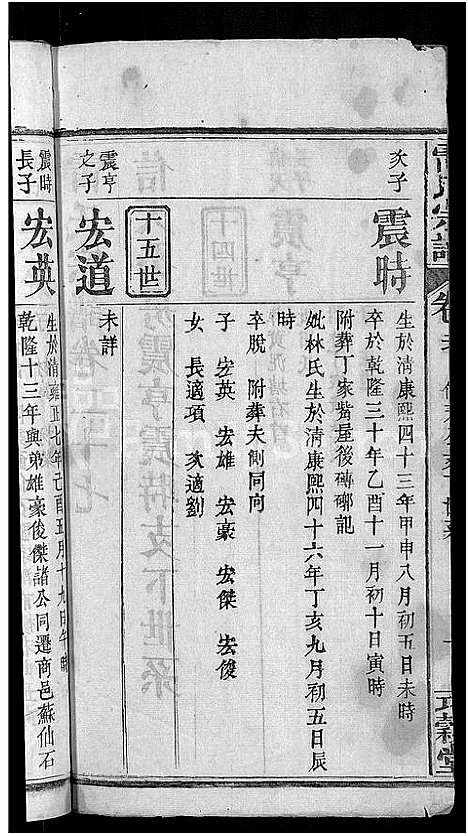 次子
震時
生於清康熙四十三年甲申八月初五日未時
卒於乾隆三十年乙酉十一月初十日寅時
附葬丁家嘴屋後磚磡記
妣林氏生於清康熙四十六年丁亥九月初五日辰
時
卒脫 附葬夫側同向
子 宏英 宏雄 宏豪 宏傑 宏俊
女 長適項 次適劉
十五世
震亨
之子
宏道
未詳
震時
長子
宏英
生於清雍正七年己酉五月十九日午時
乾隆十三年與弟雄豪俊傑諸公同遷商邑蘇仙石